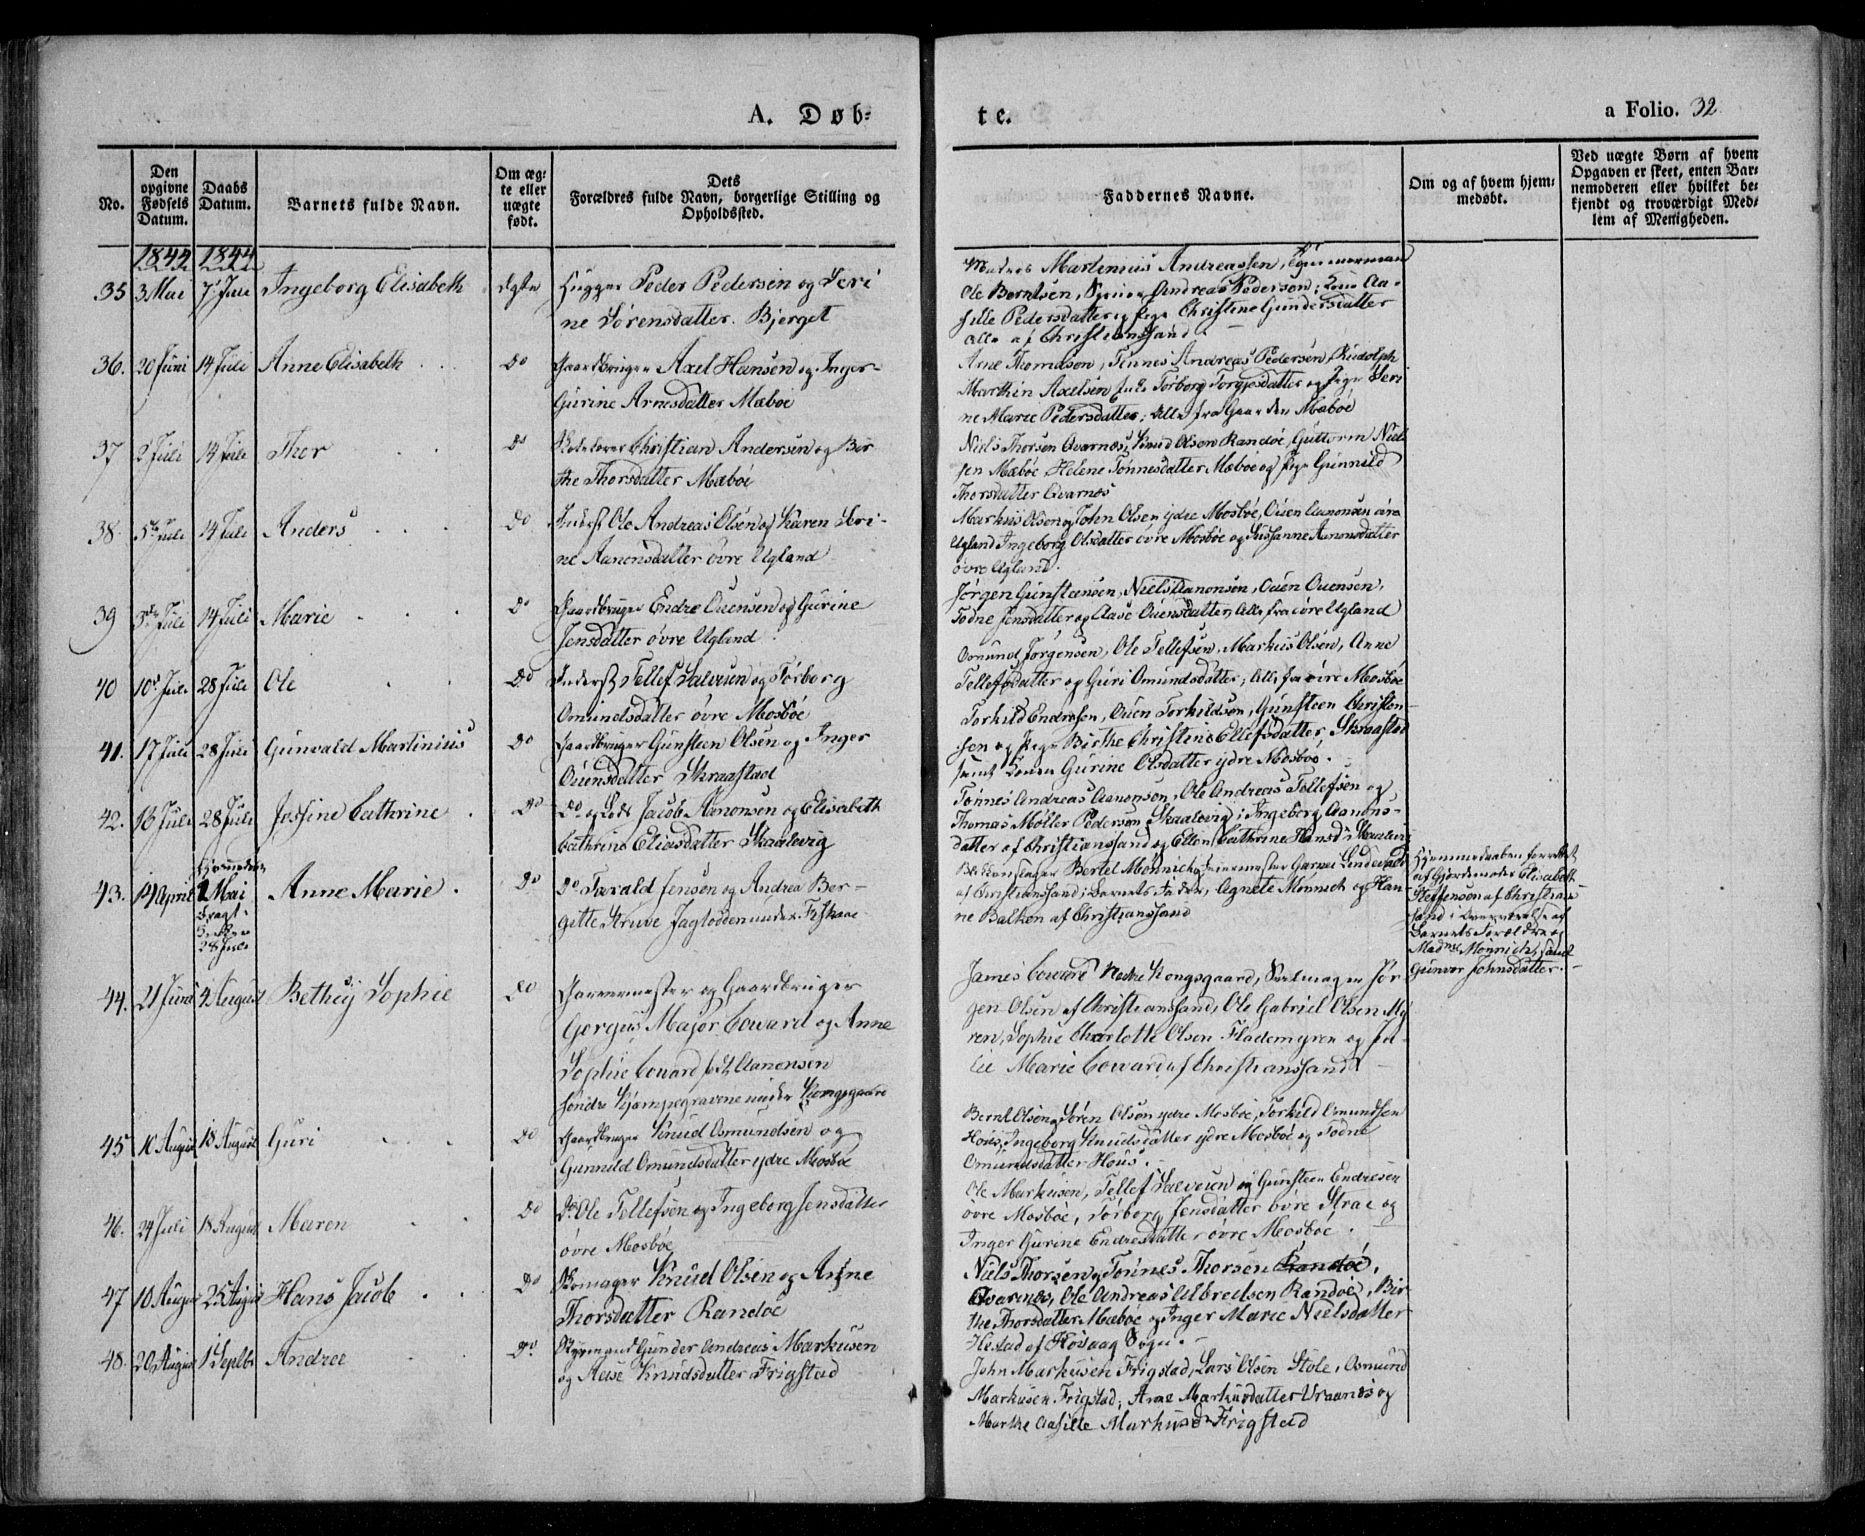 A. Døb-
te.
a Folio. 32
No.
Den opgivne Fødsels Datum.
Daabs Datum.
Barnets fulde Navn.
Om ægte eller uægte født.
Dets Forældres fulde Navn, borgerlige Stilling og Opholdssted.
Faddernes Navne.
Om og af hvem hjemmedøbt.
Ved uægte Børn af hvem Opgaven er skeet, enten Barnemoderen eller hvilket bekjendt og troværdigt Medlem af Menigheden.
1844 1844
35 3 Mai 7 Juli Ingeborg Elisabeth ægte Hugger Peder Pedersen og Seri
ne Sørensdatter. Bjerget
Martenius Andreassen,
Ole Berntsen, Andreas Pedersen, Kone Aa
sille Pedersdatter og Pige Christine Gundersdatter
alle af Christianssand.
36. 20 Juni 14 Juli Anne Elisabeth Do Gaardbruger Axel Hansen og Inger
Gurine Arnesdatter Mæbøe
Arne Thomason, Tønnes Andreas Pedersen, Rudolph
Marthin Axelsen, Torborg Torgjesdatter og Pige Seri
ne Marie Pedersdatter; Alle fra Gaarden Mæbøe
37 2 Juli 14 Juli Thor Do Christian Andersen og Bir
the Thorsdatter Mæbøe
Niels Thorsen Qvarnæs, Knud Olsen Randøe, Guttorm Niel
sen Mæbøe, Helene Tønnesdatter Mæbøe og Pige Gunnild
Thorsdatter Qvarnæs
38 5te Juli 14 Juli Anders Do Inderst Ole Andreas Olsen og Karen Seri-
ne Aanonsdatter øvre Ugland
Markus Olsen og John Olsen ydre Mosbøe, Ouen Aanonsen øvre
Ugland Ingeborg Olsdatter øvre Mosbøe og Susanne Aanonsdatter
øvre Ugland.
39 3de Juli 14 Juli Marie Do Gaardbruger Endre Ouensen og Gurine
Jensdatter øvre Ugland
Jørgen Gunsteensen, Niels Aanonsen, Ouen Ouensen,
Todne Jensdatter og Aase Ouensdatter, Alle fra øvre Ugland
40 10de Juli 28 Juli Ole Do Inderst Tellef Salvesen og Torborg
Omundsdatter øvre Mosbøe
Osmund Jørgensen, Ole Tellefsen, Markus Olsen, Anne
Tellefsdatter og Guri Omundsdatter; Alle fra øvre Mosbøe
41. 17 Juli 28 Juli Gunvald Martinius Do Gaardbruger Gunsteen Olsen og Inger
Ouensdatter Skraastad
Torkild Endresen, Ouen Torkildsen, Gunsteen Christen-
sen og Pige Birthe Christine Ellefsdatter, Skraastad
samt Konen Gurine Olsdatter ydre Mosbøe.
42. 13 Juli 28 Juli Josine Cathrine Do Do og Lods Jacob Aanonsen og Elisabeth
Cathrine Eliasdatter Skaalevig
Tønnes Andreas Aanonsen, Ole Andreas Tellefsen og
Thomas Møller Pedersen Skaalevig; Ingeborg Aanons-
datter af Christianssand og Ellen Cathrine Hansd: Skaalevig
43. 14 April 1 Mai
28 Juli
Anne Marie Do Do Tarald Jensen og Andrea Ber-
gitte Strue Jagtodden under Fiskaae
Bertel Monnich, Garner Lindeval
af Christianssand; Barnets Fader, Agnete Monnich og Han-
ne Balken af Christianssand
Hjemmedaaben forrettet
af Gjordemoder Elisabeth
Steffensen af Christian
sand i Overværelse af
Barnets Forældre og
Madme Monnich, samt
Gunvor Johnsdatter.
44. 21 Juni 4 August Bethsy Sophie Do Garvermester og Gaardbruger
Gorgus Major Coward og Anne
Sophie Coward født Aanonsen
søndre Kjæmpegravene under Kongsgaard
James Coward Nedre Kongsgaard, Jør
gen Olsen af Christianssand, Ole Gabriel Olsen My
ren, Sophie Charlotte Olsen Flademyren og Ju-
lie Marie Coward af Christianssand
45 10 August 18 August Guri Do Gaardbruger Knud Osmundsen og
Gunnild Omundsdatter ydre Mosbøe
Bernt Olsen, Søren Olsen ydre Mosbøe, Torkild Omundsen
Høus, Ingeborg Knudsdatter ydre Mosbøe og Todne
Omundsdatter Høus.
46. 24 Juli 18 August Maren Do Do Ole Tellefsen og Ingeborg Jensdatter
øvre Mosbøe
Ole Markusen, Tellef Salvesen og Gunsteen Endresen
øvre Mosbøe, Torborg Jensdatter øvre Strae og
Inger Gurine Endresdatter øvre Mosbøe.
47 10 August 25 August Hans Jacob Do Skomager Knud Olsen og Anne
Thorsdatter Randøe
Niels Thorsen og Tønnes Thorsen Randøe,
Qvarnæs, Ole Andreas Albretsen Randøe, Bir
the Thorsdatter Mæbøe og Inger Marie Nielsdatter
Hestad af Høvaag Sogn.
48. 20 August 1 Septbr Andree Do Gunder Andreas Markusen
og Aase Knudsdatter Frigstad
John Markusen Frigstad, Lars Olsen Stole, Osmund
Markusen Frigstad; Anne Markusdatter Vraanes og
Marthe Aasille Markusd: Frigstad